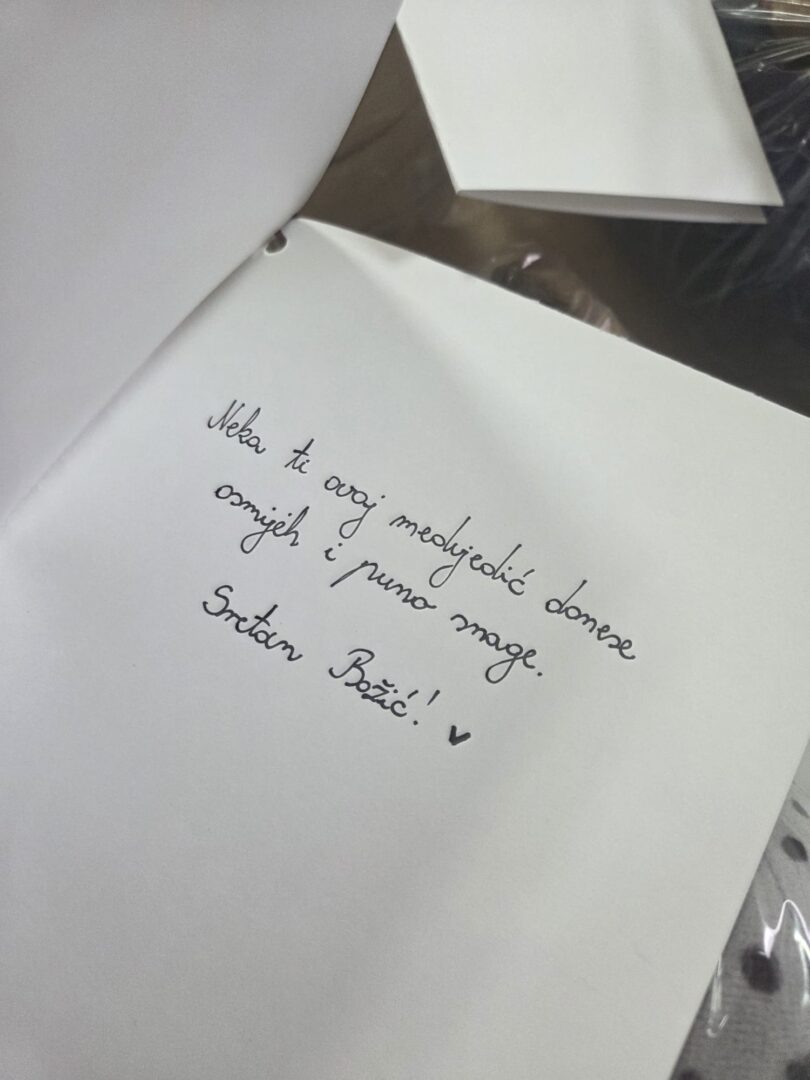 Neka ti ovaj medvjedić donese
osmijeh i puno snage.
Sretan Božić! ♥